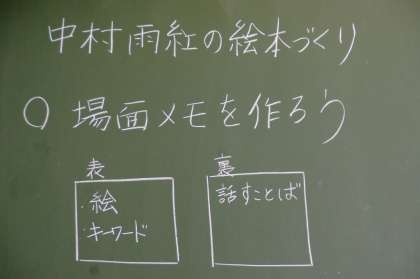 中村雨紅の絵本づくり
○ 場面メモを作ろう
表
・絵
・キーワード
裏
話すことば